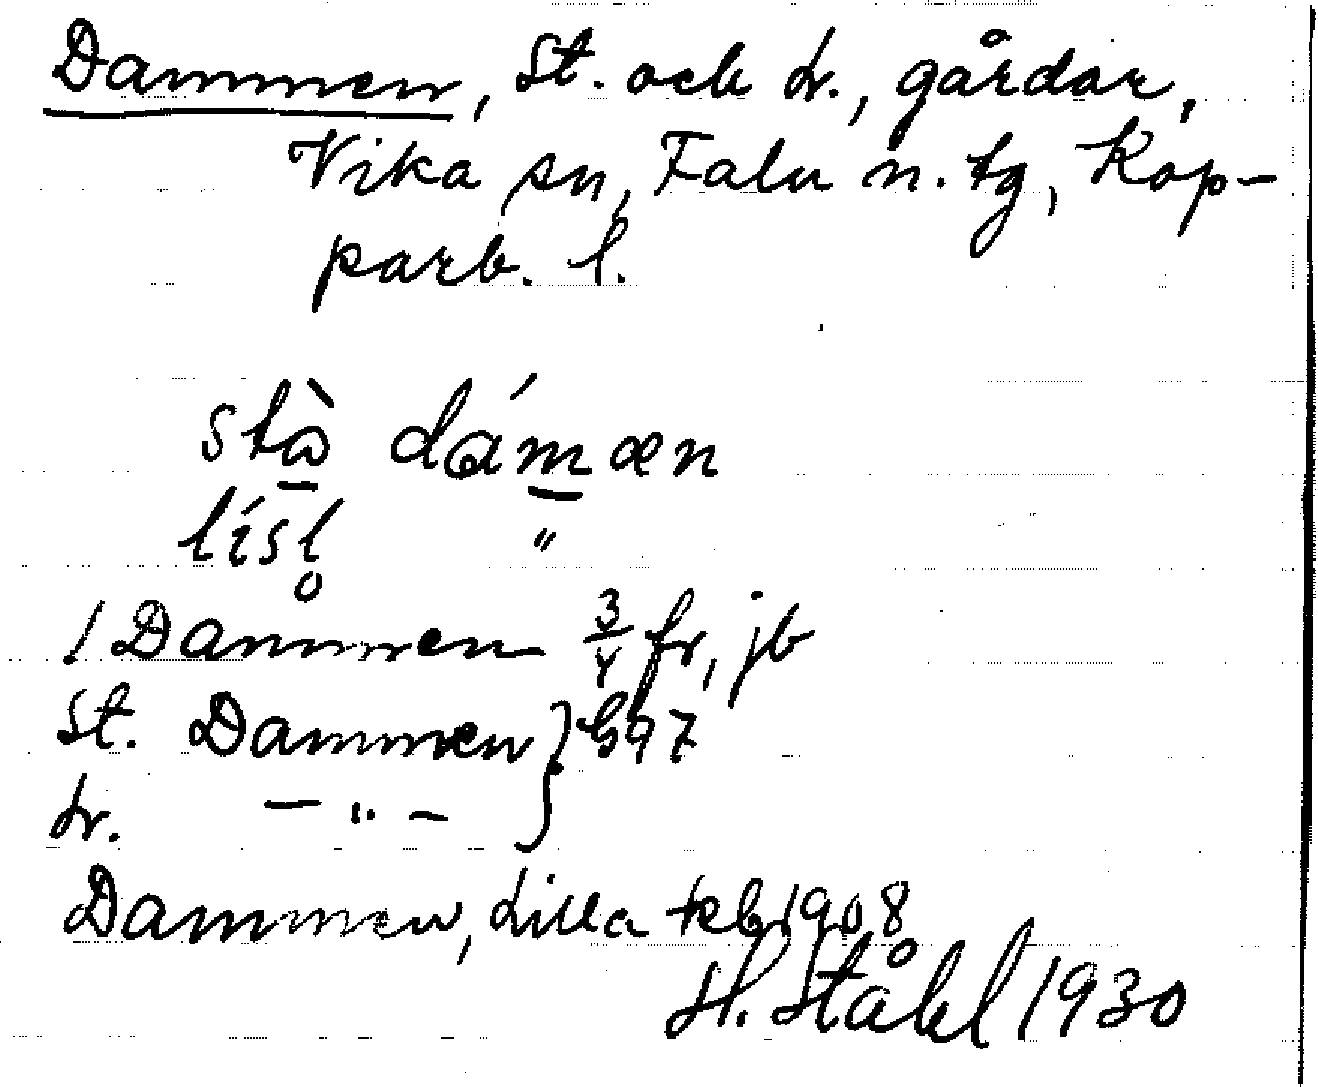 Dammen, St. och L., gårdar,
Vika sn, Falu n. tg, Kop-
parb. l.
stà dámæn
lísl̥ "
1 Dammen 3/4 fr, jb
St. Dammen } G97
L. — " —
Dammen, Lilla 1908
H. Ståhl 1930